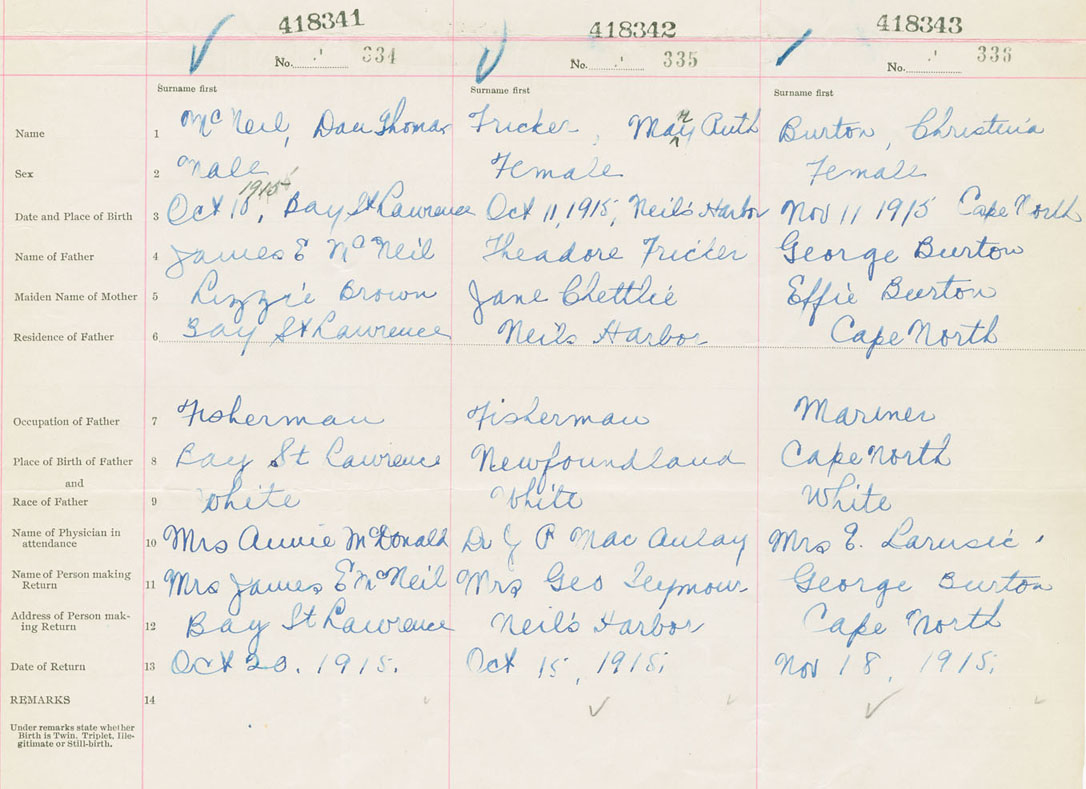 418341 418342 418343
No. 334 No. 335 No. 336
Surname first Surname first Surname first
Name 1 McNeil, Dan Thomas Fricker, Mary Ruth Burton, Christina
Sex 2 Male Female Female
1915
Date and Place of Birth 3 Oct 10, Bay St Lawrence Oct 11, 1915, Neil's Harbor Nov 11 1915 Cape North
Name of Father 4 James E McNeil Theadore Fricker George Burton
Maiden Name of Mother 5 Lizzie Brown Jane Effie Burton
Residence of Father 6 Bay St Lawrence Neil's Harbor Cape North
Occupation of Father 7 Fisherman Fisherman Mariner
Place of Birth of Father 8 Bay St Lawrence Newfoundland Cape North
and
Race of Father 9 White White White
Name of Physician in
attendance 10 Mrs Annie McDonald Dr P MacAulay Mrs E. Larusic
Name of Person making
Return 11 Mrs James E McNeil Mrs Geo Seymour George Burton
Address of Person mak-
ing Return 12 Bay St Lawrence Neil's Harbor Cape North
Date of Return 13 Oct 20. 1915. Oct 15, 1915, Nov 18, 1915,
REMARKS 14
Under remarks state whether
Birth is Twin. Triplet, Ille-
gitimate or Still-birth.